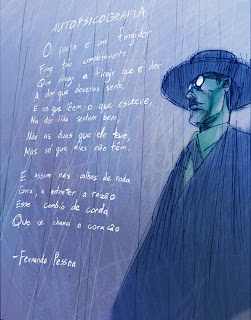 AUTOPSICOGRAFIA
O poeta é um fingidor
Finge tão completamente
Que chega a fingir que é dor
A dor que deveras sente.
E os que lêem o que escreve,
Na dor lida sentem bem,
Não as duas que ele teve,
Mas só que eles não têm.
E assim nas calhas de roda
Gira, a entreter a razão
Esse comboio de corda
Que se chama o coração
-Fernando Pessoa